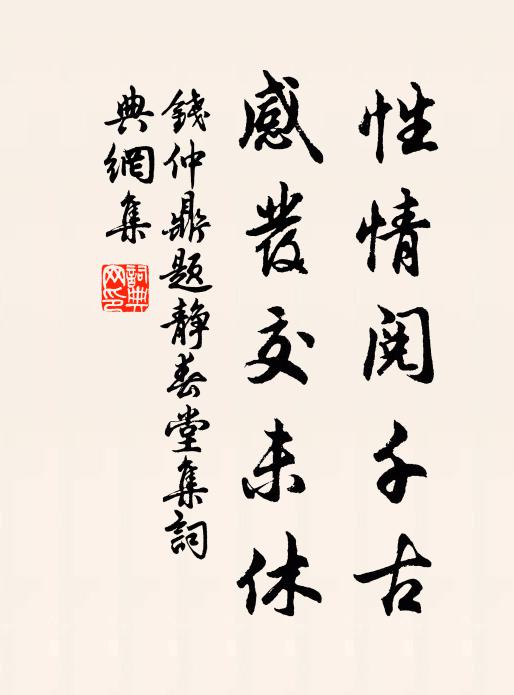 性情閱千古
感發交未休
錢仲鼎題靜春堂集詞
典網集
詞典
网印